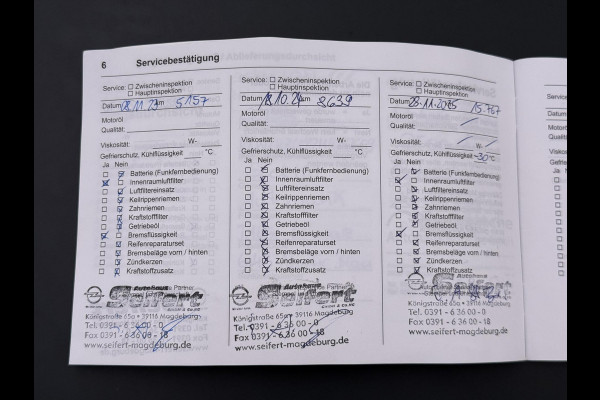 6 Servicebestätigung
Service: Zwischeninspektion
Hauptinspektion
Datum 18.11.22 km 5157
Motoröl
Qualität:
Viskosität: W-
Gefrierschutz, Kühlflüssigkeit °C
Ja Nein
Batterie (Funkfernbedienung)
Innenraumluftfilter
Luftfiltereinsatz
Keilrippenriemen
Zahnriemen
Kraftstofffilter
Getriebeöl
Bremsflüssigkeit
Reifenreparaturset
Bremsbeläge vorn / hinten
Zündkerzen
Kraftstoffzusatz
Autohaus Partner
Seifert
GmbH & Co.KG
Königstraße 65a • 39116 Magdeburg
Tel. 0391 - 6 36 00 - 0
Fax 0391 - 6 36 00 - 18
www.seifert-magdeburg.de
Service: Zwischeninspektion
Hauptinspektion
Datum 18.10.24 km 8639
Motoröl
Qualität:
Viskosität: W-
Gefrierschutz, Kühlflüssigkeit °C
Ja Nein
Batterie (Funkfernbedienung)
Innenraumluftfilter
Luftfiltereinsatz
Keilrippenriemen
Zahnriemen
Kraftstofffilter
Getriebeöl
Bremsflüssigkeit
Reifenreparaturset
Bremsbeläge vorn / hinten
Zündkerzen
Kraftstoffzusatz
Autohaus Partner
Seifert
GmbH & Co.KG
Königstraße 65a • 39116 Magdeburg
Tel. 0391 - 6 36 00 - 0
Fax 0391 - 6 36 00 - 18
www.seifert-magdeburg.de
Service: Zwischeninspektion
Hauptinspektion
Datum 28.11.2025 15.767
Motoröl
Qualität:
Viskosität: W-
Gefrierschutz, Kühlflüssigkeit -30 °C
Ja Nein
Batterie (Funkfernbedienung)
Innenraumluftfilter
Luftfiltereinsatz
Keilrippenriemen
Zahnriemen
Kraftstofffilter
Getriebeöl
Bremsflüssigkeit
Reifenreparaturset
Bremsbeläge vorn / hinten
Zündkerzen
Kraftstoffzusatz
Autohaus
Seifert
Königstraße 65a • 39116 Magdeburg
Tel. 0391 - 6 36 00 - 0
Fax 0391 - 6 36 00 - 18
www.seifert-magdeburg.de